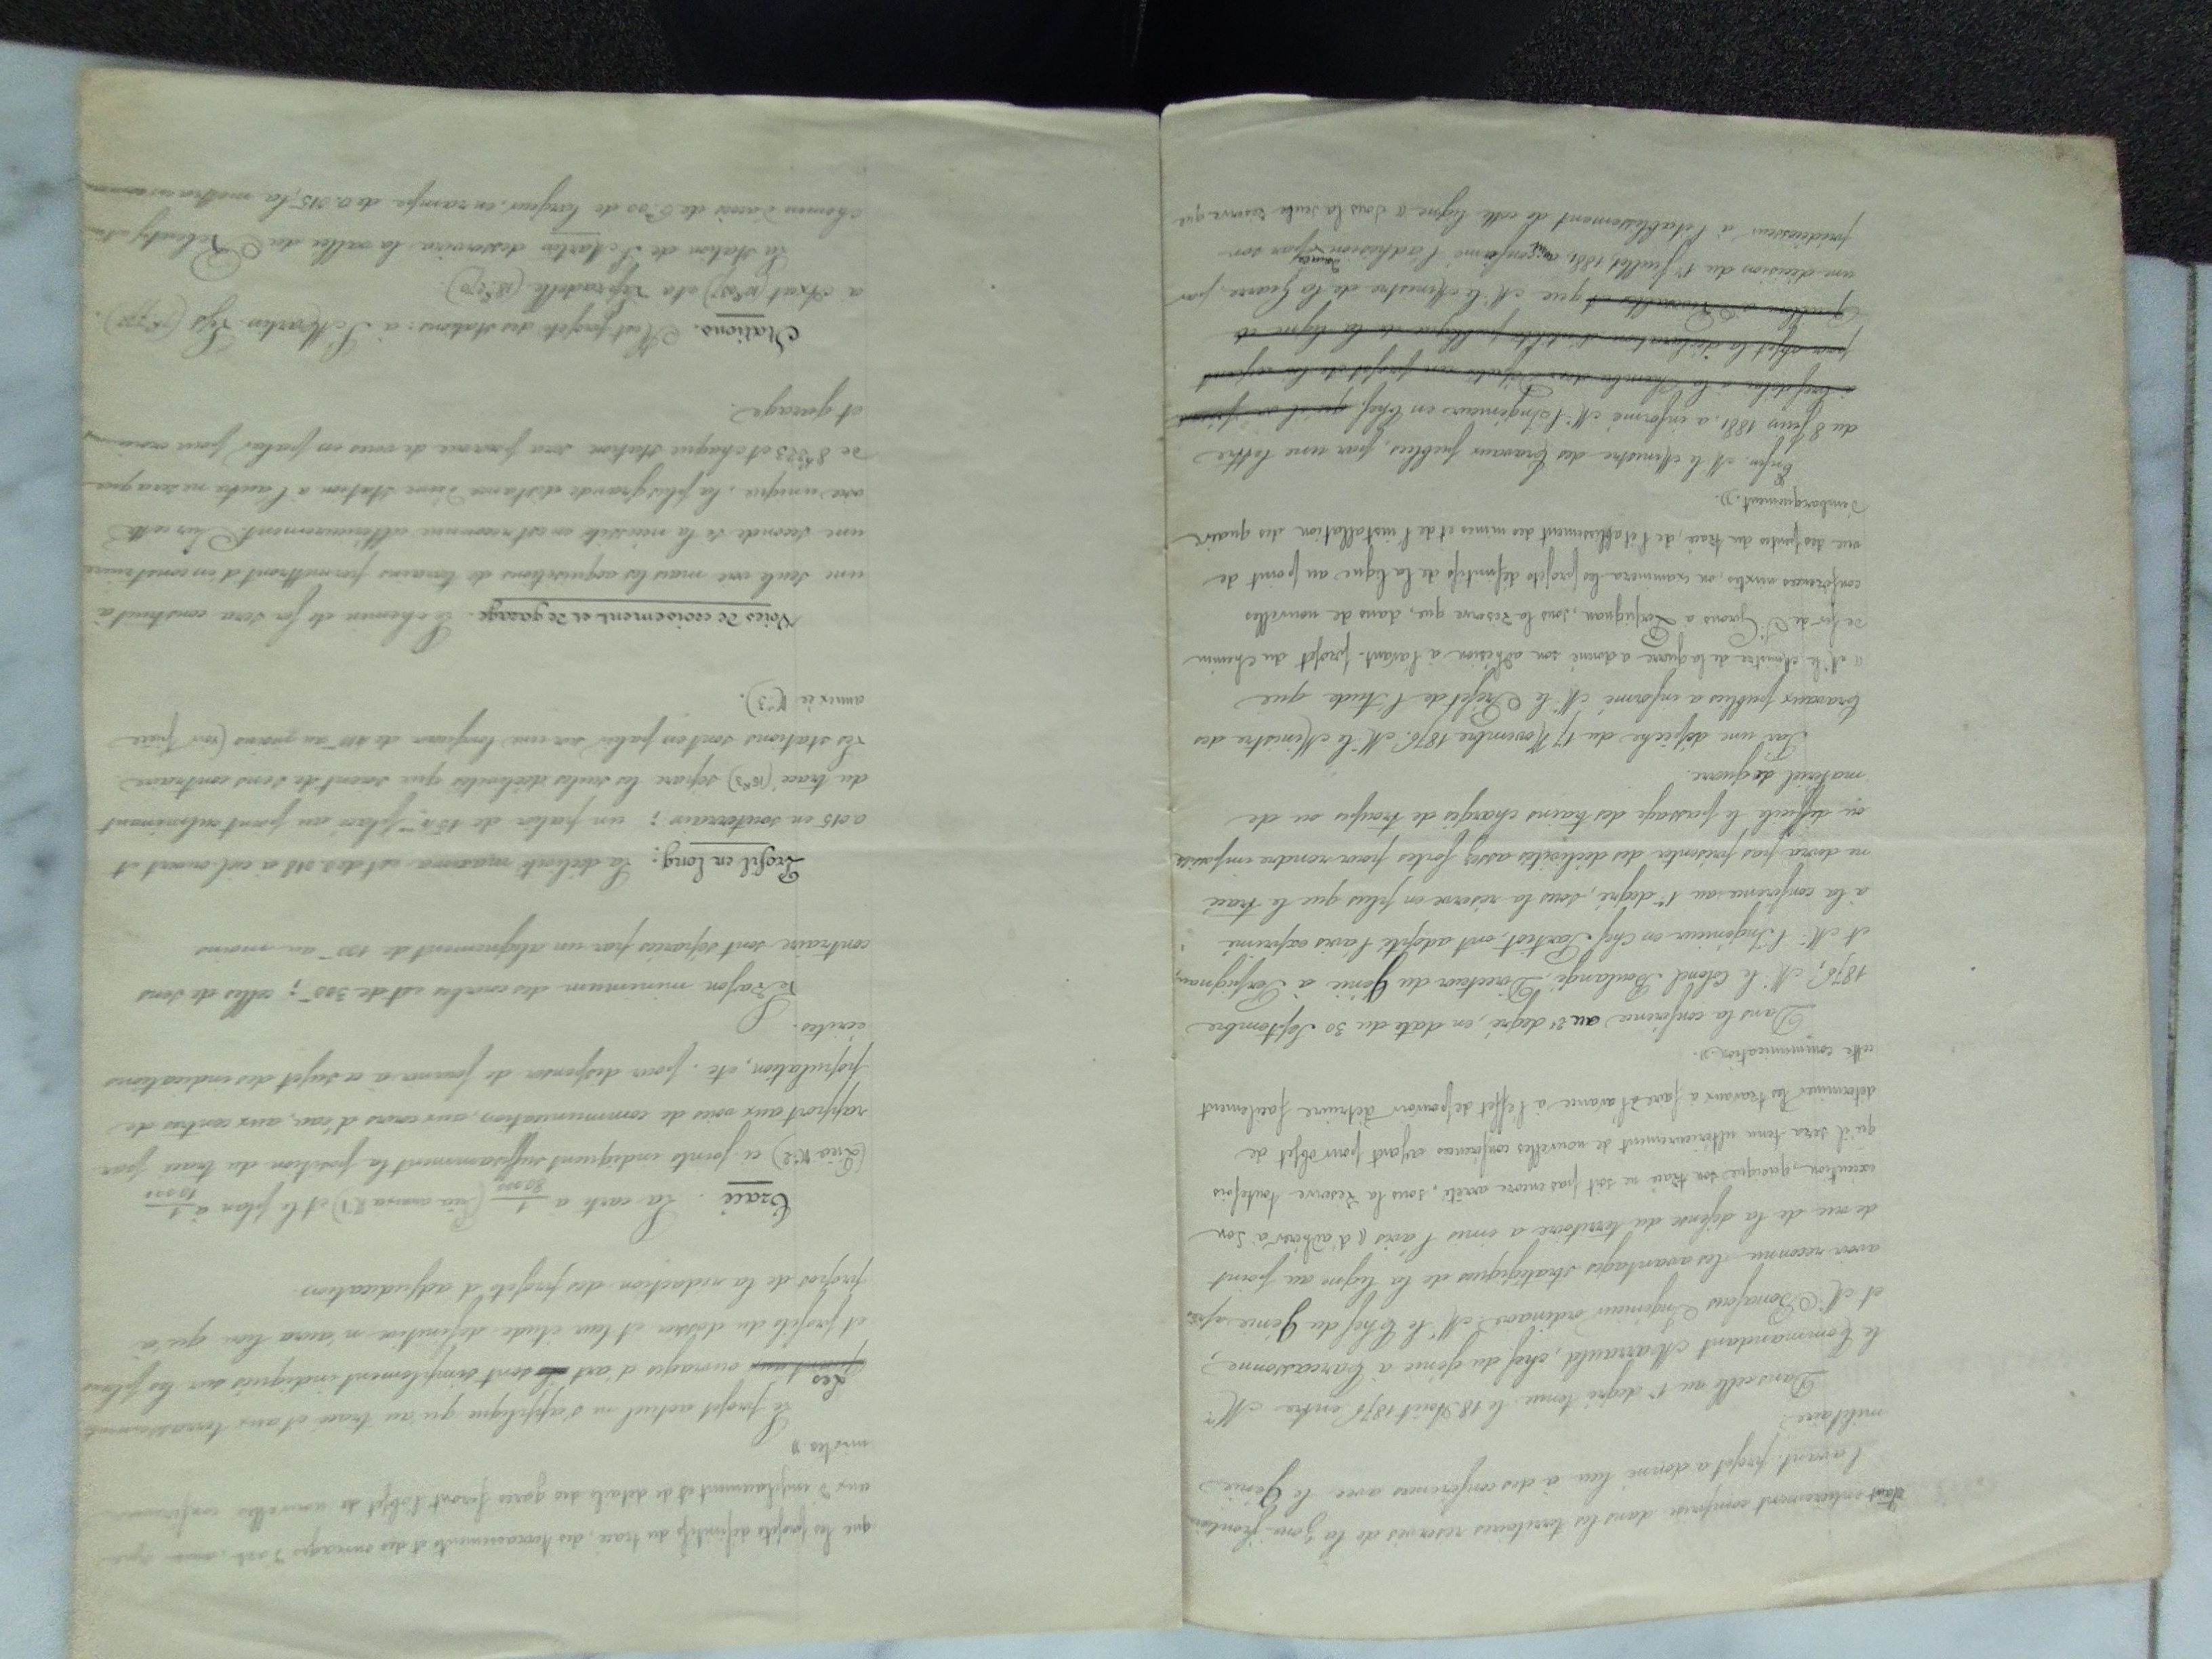 étant entièrement comprise dans les territoires réservés de la zone frontière
l'avant-projet a donné lieu à des conférences avec le Génie
militaire.
Dans celle au 1er degré tenue le 18 Août 1876 entre Mr
le Commandant Marrauld, chef du génie à Carcassonne,
et Mr Bonafous Ingénieur ordinaire. Mr le Chef du Génie après
avoir reconnu les avantages stratégiques de la ligne au point
de vue de la défense du territoire a émis l'avis « d'adhérer à son
exécution, quoique son tracé ne soit pas encore arrêté, sous la réserve toutefois
qu'il sera tenu ultérieurement de nouvelles conférences ayant pour objet de
déterminer les travaux à faire à l'avance à l'effet de pouvoir détruire facilement
cette communication ».
Dans la conférence au 2e degré, en date du 30 Septembre
1876, Mr le Colonel Boulangé, Directeur du Génie à Perpignan,
et Mr l'Ingénieur en chef Partiot, ont adopté l'avis exprimé
à la conférence au 1er degré, sous la réserve en plus que le tracé
ne devra pas présenter des déclivités assez fortes pour rendre impossible
ou difficile le passage des trains chargés de troupes ou de
matériel de guerre.
Par une dépêche du 17 Novembre 1876. Mr le Ministre des
Travaux publics a informé Mr le Préfet de l'Aude que
« Mr le Ministre de la guerre a donné son adhésion à l'avant-projet du chemin
de fer de St Girons à Perpignan, sous la réserve que, dans de nouvelles
conférences mixtes, on examinera les projets définitifs de la ligne au point de
vue des pentes du tracé, de l'établissement des mines et de l'installation des quais
d'embarquement. ».
Enfin. Mr le Ministre des Travaux publics, par une lettre
du 8 Juin 1881, a informé Mr l'Ingénieur en Chef, qu'il
à bref délai à la Chambre des Députés un projet de loi ayant
pour objet la déclaration d'utilité publique de la ligne de
Quillan à Rivesaltes et que Mr le Ministre de la Guerre, par
une décision du 1er Juillet 1881, avait confirmé l'adhésion donnée par son
prédécesseur à l'établissement de cette ligne « sous la seule réserve que
que les projets définitifs du tracé, des terrassements et des ouvrages d'art, ainsi que
ceux d'emplacement et de détails des gares feront l'objet de nouvelles conférences
mixtes »
Le projet actuel ne s'applique qu'au tracé et aux terrassements.
Les
Quant aux ouvrages d'art sont simplement indiqués sur les plans
et profils du dossier et leur étude définitive n'aura lieu qu'à
propos de la rédaction des projets d'adjudication.
Tracé. La carte à 1/80000 (Pièce annexe No 1) et le plan à 1/10000
(Pièce No 2) ci-joints indiquent suffisamment la position du tracé par
rapport aux voies de communication, aux cours d'eau, aux centres de
population, etc. pour dispenser de fournir à ce sujet des indications
écrites.
Le rayon minimum des courbes est de 300m ; celles de sens
contraire sont séparées par un alignement de 100m au moins
Profil en long. La déclivité maxima est de 0.018 à ciel ouvert et
0.015 en souterrain ; un palier de placé au point culminant
du tracé sépare les seules déclivités qui soient de sens contraire.
Les stations sont en palier sur une longueur de au moins (voir pièce
annexée No 3).
Voies de croisement et de garage. Le chemin de fer sera construit à
une seule voie mais les acquisitions de terrains permettront d'en construire
une seconde si la nécessité en est reconnue ultérieurement. Sur cette
voie unique, la plus grande distance d'une station à l'autre ne sera que
de 8k 323 et chaque station sera pourvue de voies en palier pour croisement
et garage.
Stations. Il est projeté des stations : à St Martin-Lys
à Axat et à Lapradelle (18k 270).
La station de St Martin desservira la vallée du Rebenty et un
chemin d'accès de 6m 00 de largeur, en rampe de 0.015, la mettra en